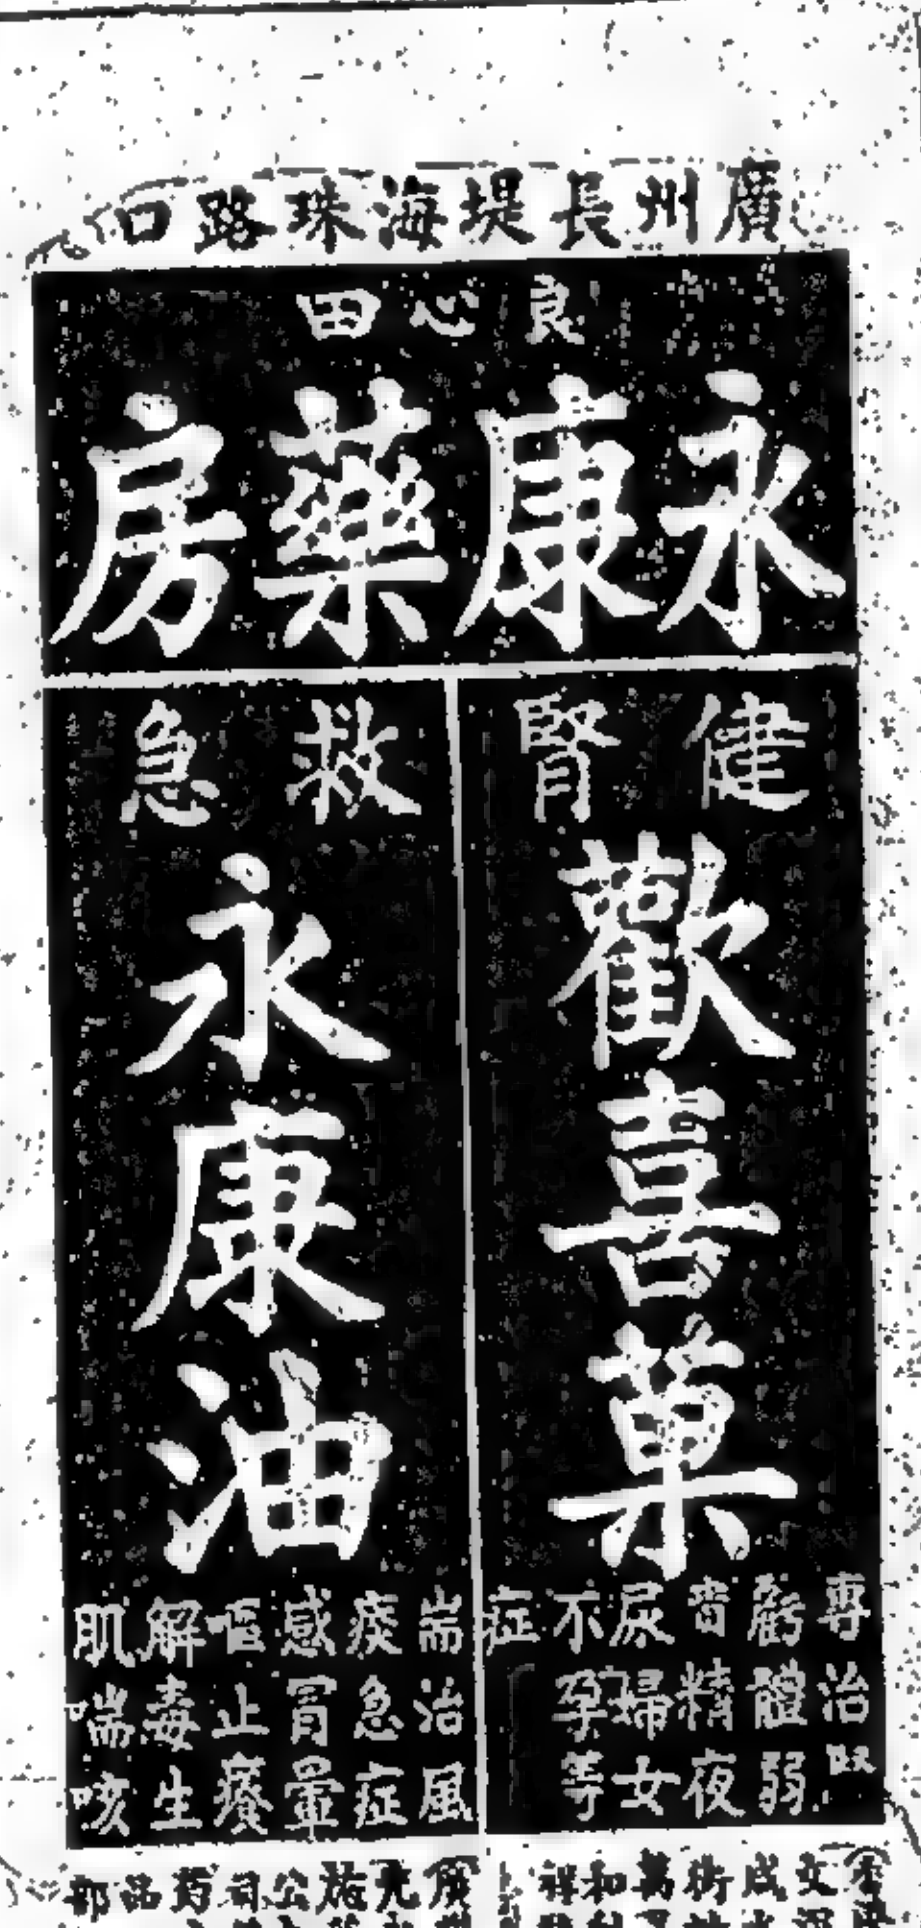 廣州長堤海珠路口
良心田
永康藥房
健腎
歡喜菓
專治腎
虧體弱
精夜
尿婦女
不孕等
症
救急
永康油
耑治風
痰急症
感冒暈
嘔止癢
解毒生
肌喘咳